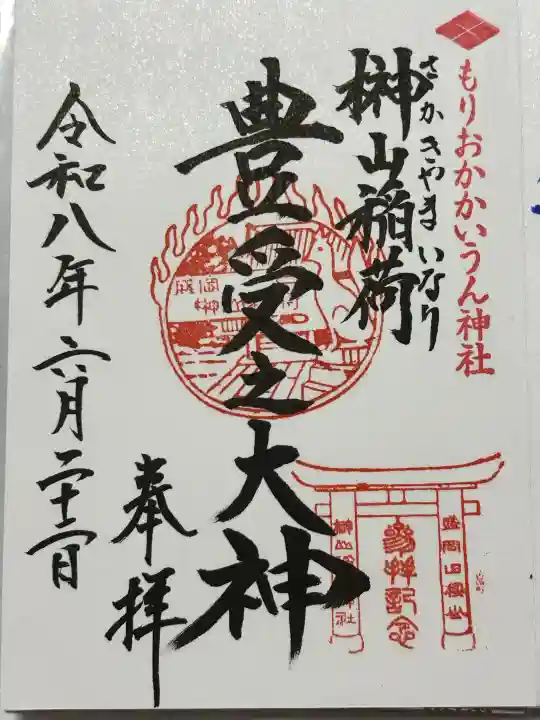 もりおかかいうん神社
榊山稲荷
さかきやまいなり
豊受之大神
奉拝
令和八年六月二十二日
参拝記念